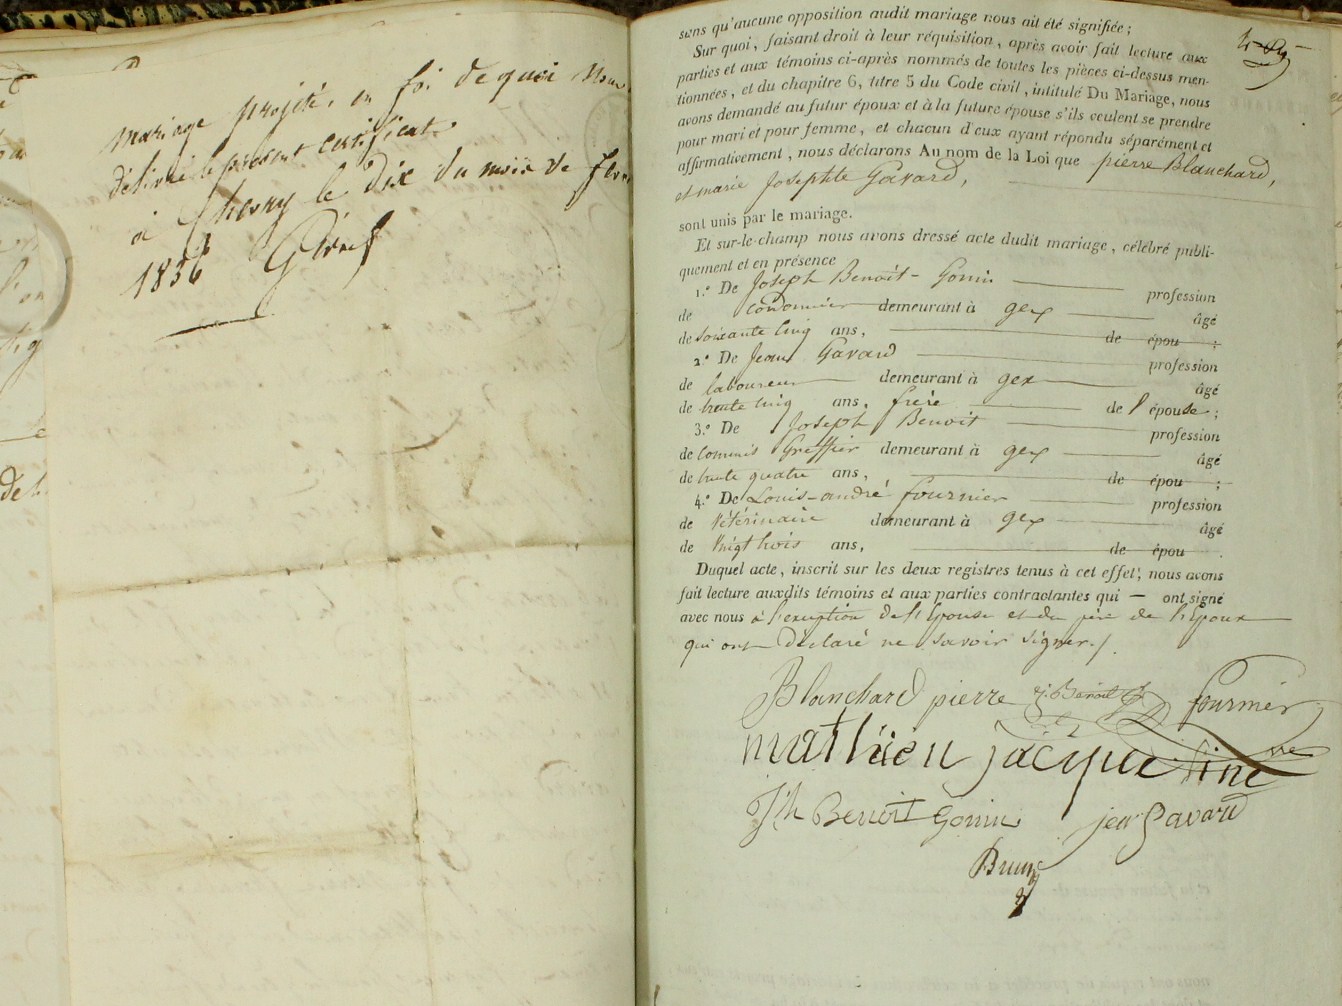 mariage projeté, en foi de quoi nous
délivré le présent certificat
à Chevry le dix du mois de
1836
sens qu'aucune opposition audit mariage nous ait été signifiée ;
Sur quoi, faisant droit à leur réquisition, après avoir fait lecture aux
parties et aux témoins ci-après nommés de toutes les pièces ci-dessus men-
tionnées, et du chapitre 6, titre 5 du Code civil, intitulé Du Mariage, nous
avons demandé au futur époux et à la future épouse s'ils veulent se prendre
pour mari et pour femme, et chacun d'eux ayant répondu séparément et
affirmativement, nous déclarons Au nom de la Loi que pierre Blanchard,
et marie Josephte Gavard,
sont unis par le mariage.
Et sur-le-champ nous avons dressé acte dudit mariage, célébré publi-
quement et en présence
1.° De Joseph Benoît-Gonin profession
de cordonnier demeurant à gex âgé
de soixante cinq ans, de épou ;
2.° De Jean Gavard profession
de laboureur demeurant à gex âgé
de trente cinq ans, frère de l'épouse ;
3.° De Joseph Benoit profession
de commis Greffier demeurant à gex âgé
de trente quatre ans, de épou ;
4.° De Louis-andré fournier profession
de Vétérinaire demeurant à gex âgé
de Vingt trois ans, de épou .
Duquel acte, inscrit sur les deux registres tenus à cet effet, nous avons
fait lecture auxdits témoins et aux parties contractantes qui — ont signé
avec nous à l'exception de l'Epouse et du père de l'Epoux
qui ont Déclaré ne savoir signer./.
Blanchard pierre j. Benoit fournier
mathieu jacqueline
Jh Benoit Gonin jean Gavard